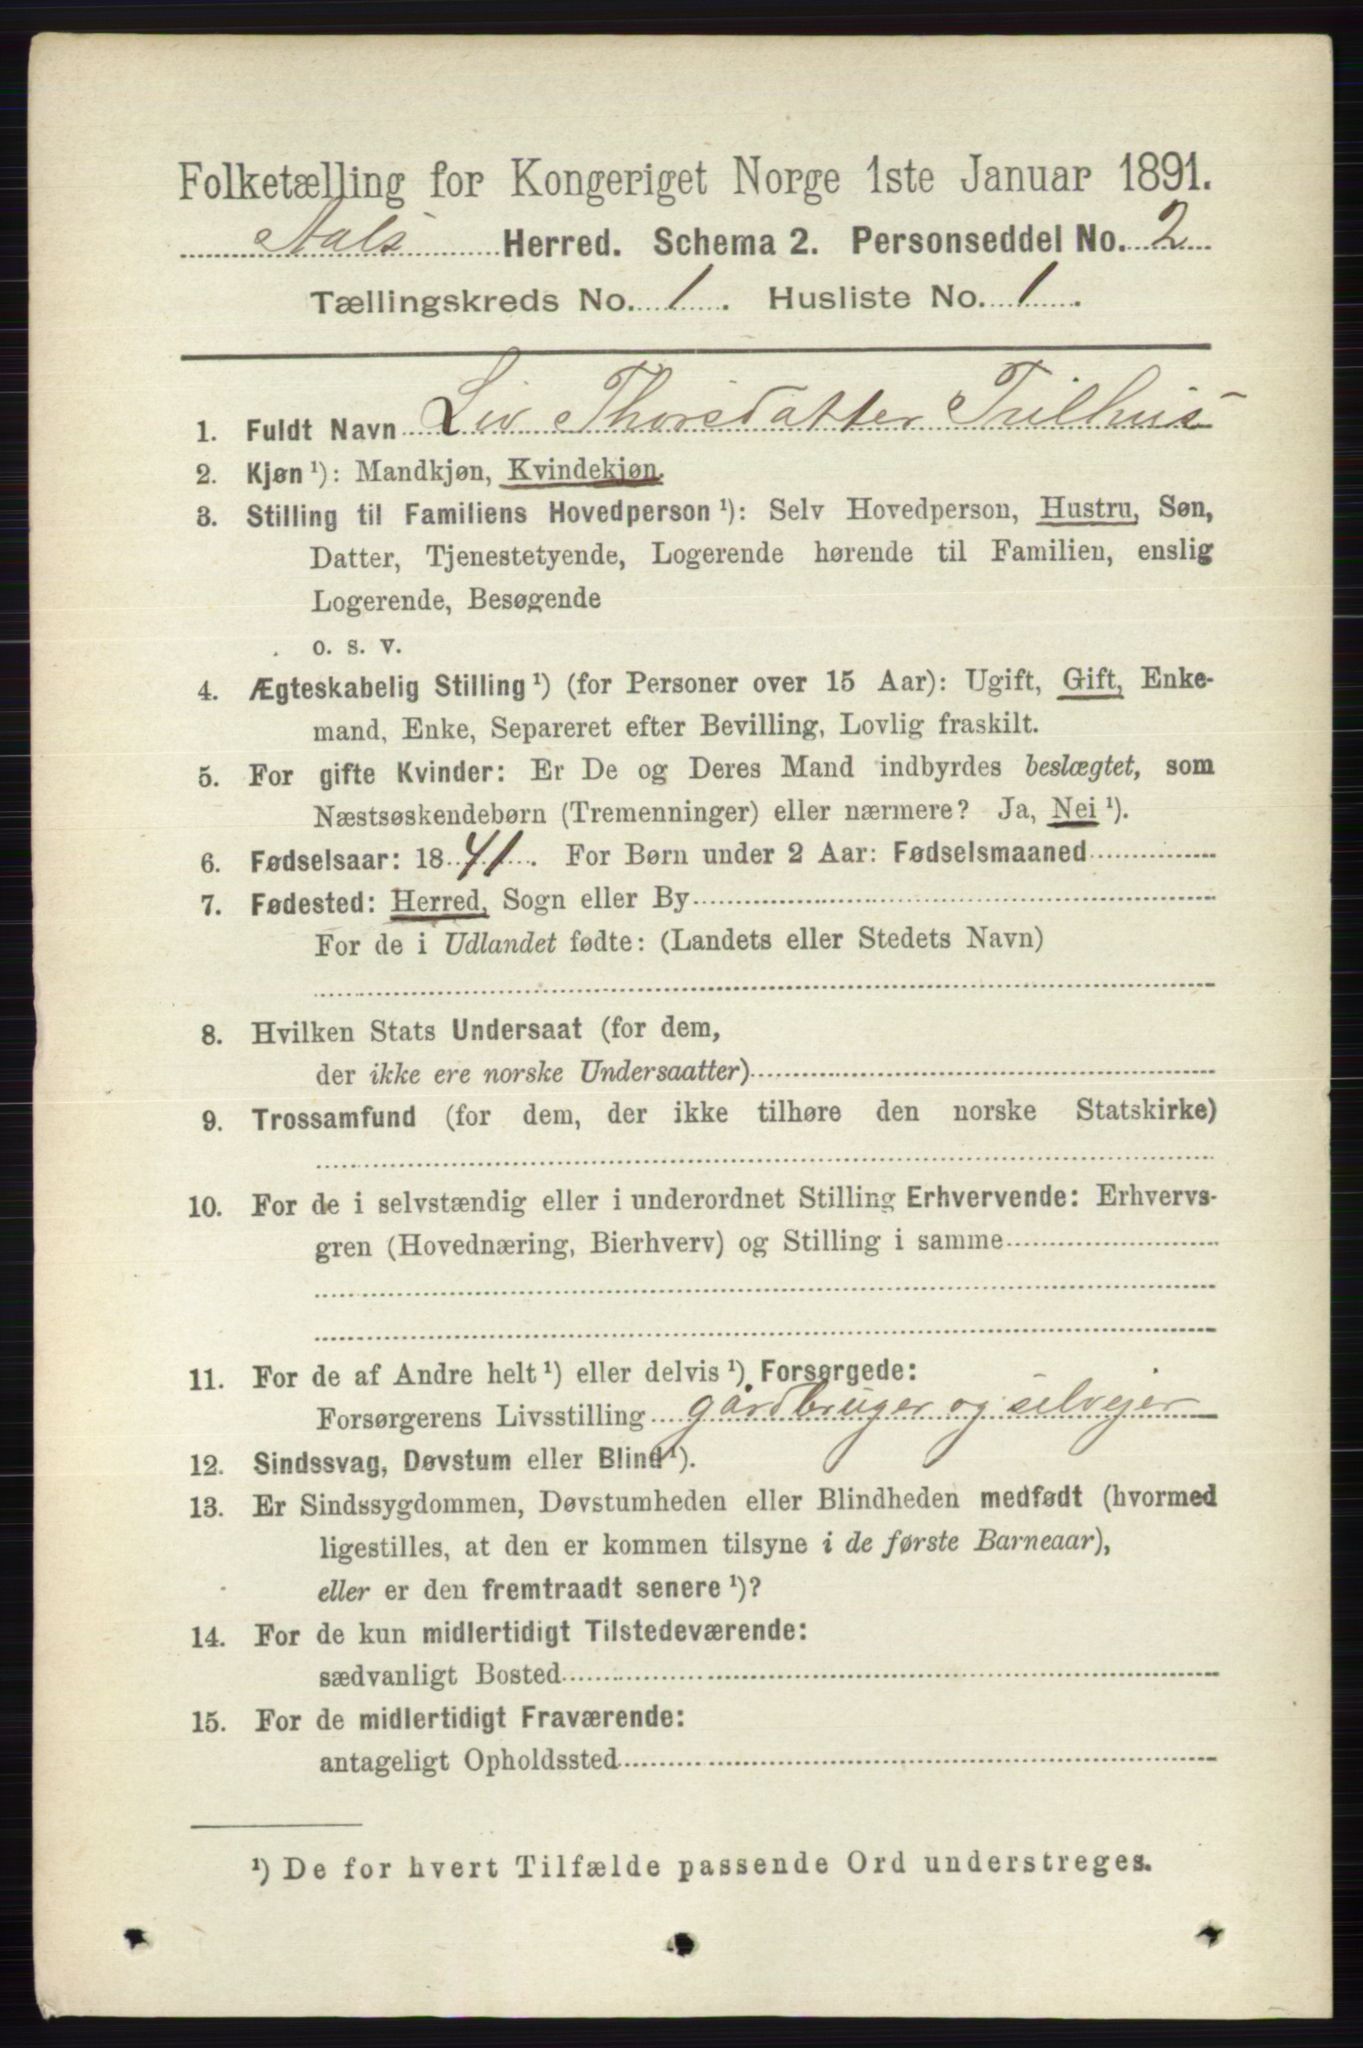 Folketælling for Kongeriget Norge 1ste Januar 1891.
Aals Herred. Schema 2. Personseddel No. 2
Tællingskreds No. 1. Husliste No. 1.
1. Fuldt Navn Liv Thorsdatter Trilhus
2. Kjøn ¹): Mandkjøn, Kvindekjøn.
3. Stilling til Familiens Hovedperson ¹): Selv Hovedperson, Hustru, Søn,
Datter, Tjenestetyende, Logerende hørende til Familien, enslig
Logerende, Besøgende
o. s. v.
4. Ægteskabelig Stilling ¹) (for Personer over 15 Aar): Ugift, Gift, Enke-
mand, Enke, Separeret efter Bevilling, Lovlig fraskilt.
5. For gifte Kvinder: Er De og Deres Mand indbyrdes beslægtet, som
Næstsøskendebørn (Tremenninger) eller nærmere? Ja, Nei ¹).
6. Fødselsaar: 1841. For Børn under 2 Aar: Fødselsmaaned
7. Fødested: Herred, Sogn eller By
For de i Udlandet fødte: (Landets eller Stedets Navn)
8. Hvilken Stats Undersaat (for dem,
der ikke ere norske Undersaatter)
9. Trossamfund (for dem, der ikke tilhøre den norske Statskirke)
10. For de i selvstændig eller i underordnet Stilling Erhvervende: Erhvervs-
gren (Hovednæring, Bierhverv) og Stilling i samme
11. For de af Andre helt ¹) eller delvis ¹) Forsørgede:
Forsørgerens Livsstilling gårdbruger og selvejer
12. Sindssvag, Døvstum eller Blind ¹).
13. Er Sindssygdommen, Døvstumheden eller Blindheden medfødt (hvormed
ligestilles, at den er kommen tilsyne i de første Barneaar),
eller er den fremtraadt senere ¹)?
14. For de kun midlertidigt Tilstedeværende:
sædvanligt Bosted
15. For de midlertidigt Fraværende:
antageligt Opholdssted
¹) De for hvert Tilfælde passende Ord understreges.